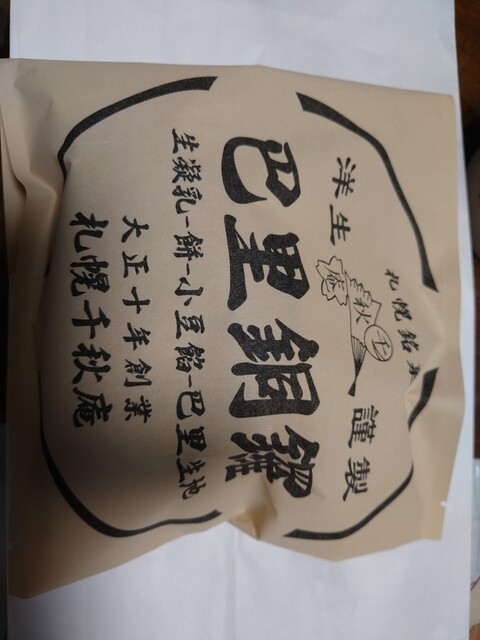 札幌銘菓
千秋庵
洋生 謹製
巴里銅鑼
生凝乳-餅-小豆餡-巴里生地
大正十年創業
札幌千秋庵